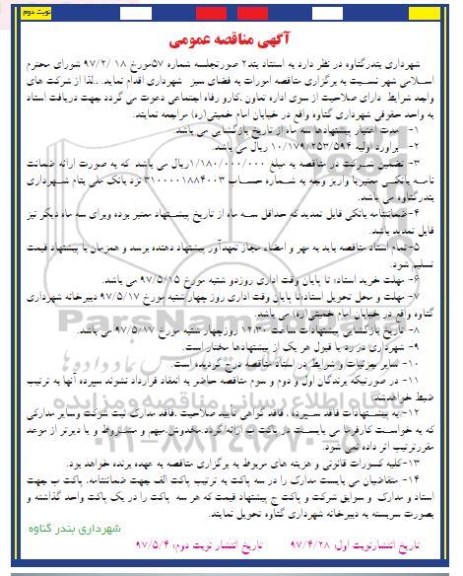 نوبت دوم
آگهی مناقصه عمومی
شهرداری بندرگناوه در نظر دارد به استناد بند۲ صورتجلسه شماره ۵۷مورخ ۹۷/۲/۱۸ شورای محترم
اسلامی شهر نسبت به برگزاری مناقصه امورات به فضای سبز شهرداری اقدام نماید...لذا از شرکت های
واجد شرایط دارای صلاحیت از سوی اداره تعاون ،کارو رفاه اجتماعی دعوت می گردد جهت دریافت اسناد
به واحد حقوقی شهرداری گناوه واقع در خیابان امام خمینی(ره) مراجعه نمایند.
۱- مدت اعتبار پیشنهادها سه ماه از تاریخ بازگشایی می باشد.
۲- برآورد اولیه ۱۰/۱۷۹/۲۵۳/۵۹۴ ریال می باشد.
۳- تضمین شرکت در مناقصه به مبلغ ۱/۱۸۰/۰۰۰/۰۰۰ریال می باشد که به صورت ارائه ضمانت
نامه بانکی معتبریا واریز وجه به شماره حساب ۳۱۰۰۰۰۱۸۸۴۰۰۳ نزد بانک ملی بنام شهرداری
بندرگناوه می باشد.
۴-ضمانتنامه بانکی قابل تمدید که حداقل سه ماه از تاریخ پیشنهاد معتبر بوده وبرای سه ماه دیگر نیز
قابل تمدید باشد.
۵-تمام اسناد مناقصه باید به مهر و امضاء مجاز تعهدآور پیشنهاد دهنده برسد و همزمان با پیشنهاد قیمت
تسلیم شود.
۶- مهلت خرید اسناد: تا پایان وقت اداری روزدو شنبه مورخ ۹۷/۵/۱۵ می باشد.
۷- مهلت و محل تحویل اسناد:تا پایان وقت اداری روز چهار شنبه مورخ ۹۷/۵/۱۷ دبیرخانه شهرداری
گناوه واقع در خیابان امام خمینی(ره) می باشد.
۸- تاریخ بازگشایی پیشنهادات ساعت ۱۲:۳۰ روزچهار شنبه مورخ ۹۷/۵/۱۷ می باشد.
۹- شهرداری در رد یا قبول هر یک از پیشنهادها مختار است.
۱۰- سایر جزئیات و شرایط در اسناد مناقصه درج گردیده است.
۱۱- در صورتیکه برندگان اول و دوم و سوم مناقصه حاضر به انعقاد قرارداد نشوند سپرده آنها به ترتیب
ضبط خواهدشد.
۱۲- به پیشنهادات فاقد سپرده ، فاقد گواهی تایید صلاحیت ،فاقد مدارک ثبت شرکت وسایر مدارکی
که به خواست کارفرما می بایست در پاکت ب ارائه گردد،مخدوش،مبهم و مشروط و یا دیرتر از موعد
مقررترتیب اثر داده نمی شود.
۱۳-کلیه کسورات قانونی و هزینه های مربوط به برگزاری مناقصه به عهده برنده خواهد بود.
۱۴- متقاضیان می بایست مدارک را در سه پاکت به ترتیب پاکت الف جهت ضمانتنامه، پاکت ب جهت
اسناد و مدارک و سوابق شرکت و پاکت ج پیشنهاد قیمت که هر سه پاکت را در یک پاکت واحد گذاشته و
بصورت سربسته به دبیرخانه شهرداری گناوه تحویل نمایند.
شهرداری بندر گناوه
تاریخ انتشارنوبت اول: ۹۷/۴/۲۸ تاریخ انتشار نوبت دوم: ۹۷/۵/۴
ParsNamadData
پایگاه اطلاع رسانی مناقصه و مزایده
۰۲۱-۸۸۳۴۹۶۷۰-۵